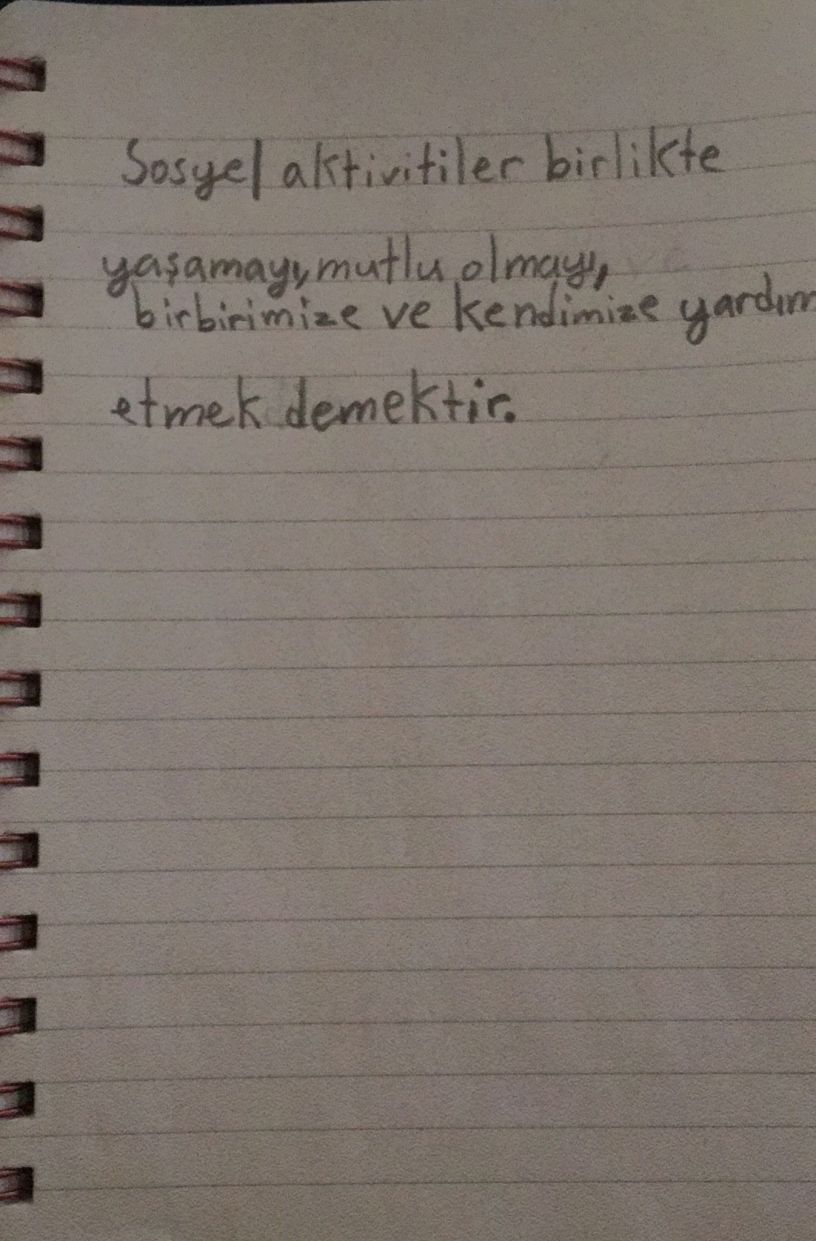 Sosyel aktivitiler birlikte
yaşamayı, mutlu olmayı,
birbirimize ve kendimize yardım
etmek demektir.